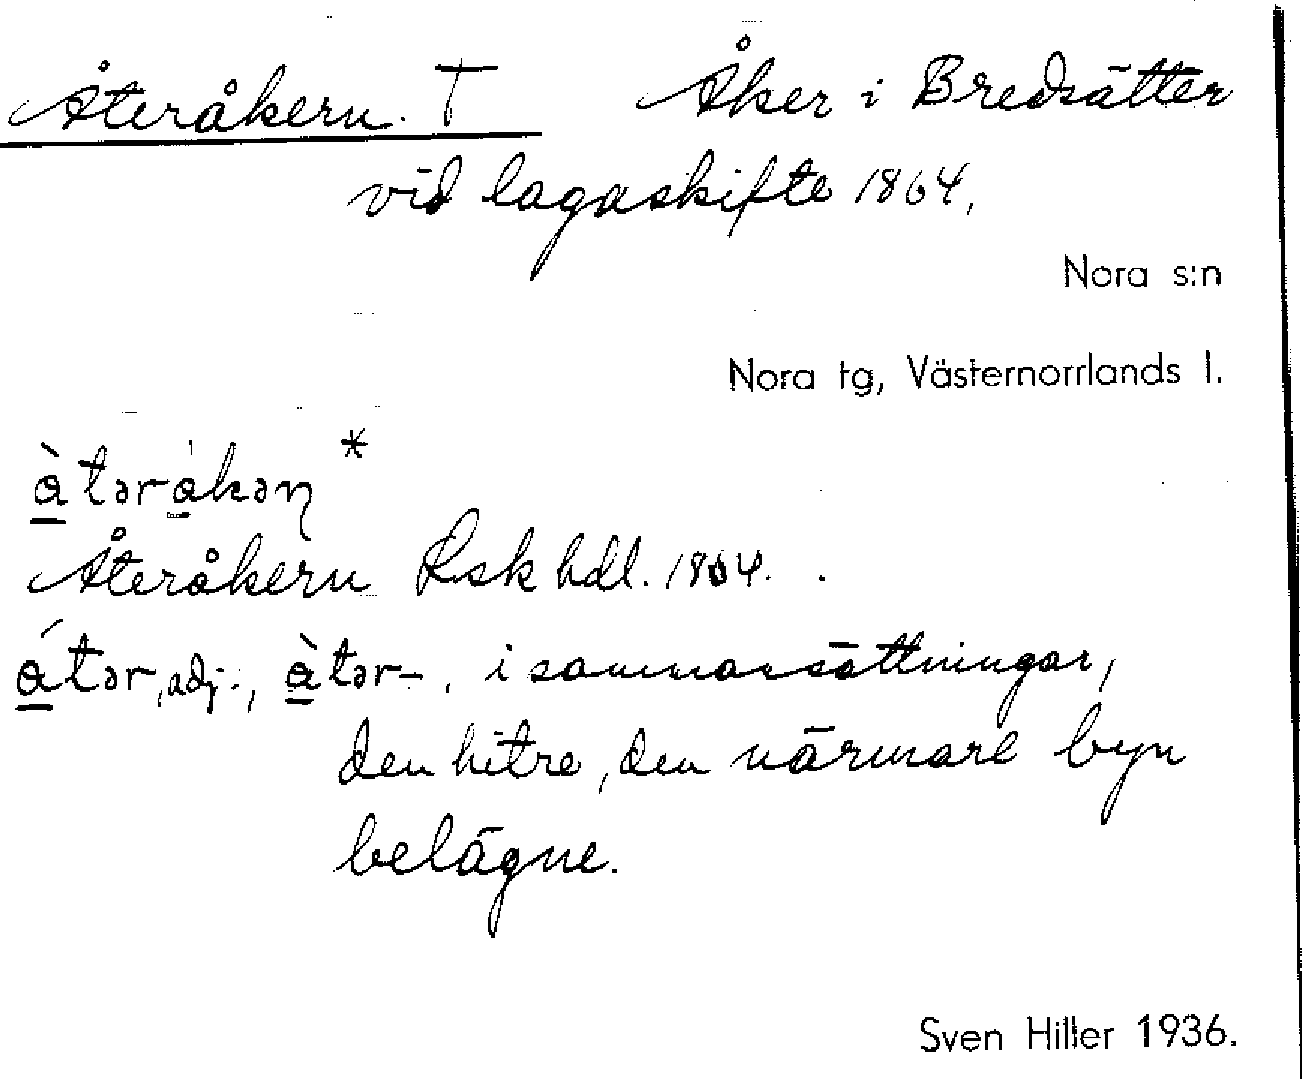 Återåkern. † Åker i Bredsätter
vid lagaskifte 1864,
Nora s:n
Nora tg, Västernorrlands l.
àtəråkəɳ *
Återåkern Lsk hdl. 1864.
átər, adj., àtər-, i sammansättningar,
den hitre, den närmare byn
belägne.
Sven Hiller 1936.